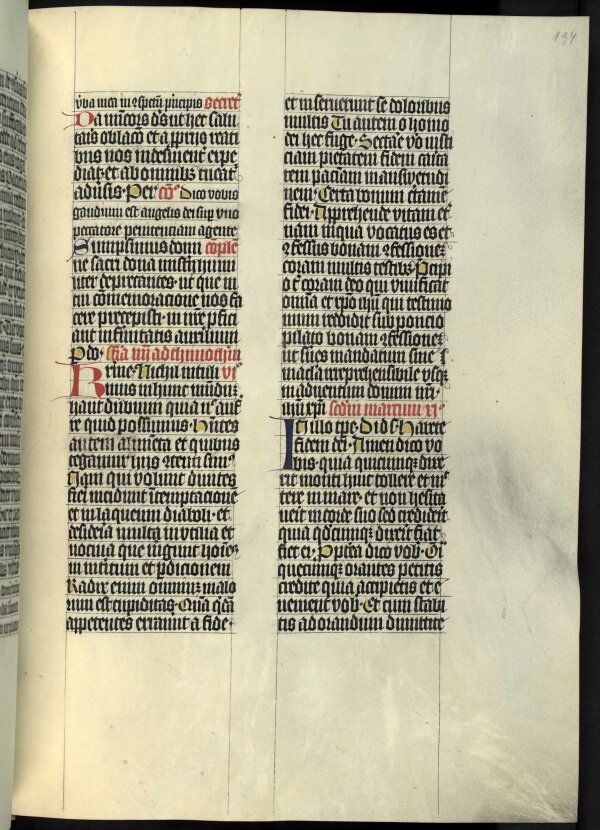 194
v̄ba mea in ɔspectu p̄ncipis Secret̄
Da mīcors d̄s ut hec salu
taris oblaco et a p̄prijs reati
bus nos indesinent̄ expe
diat et ab omnibus tueat̄
adūsis Per cō Dico vobis
gaudium est angelis dei sup vno
peccatore penitenciam agente
Sumpsimus domi cōplen̄
ne sacri dona misterij
iter deprecantes ut que in
tui cōmemoracione nos fa
cere precepisti in nr̄e p̄fici
ant infirmitatis auxilium
P do fr̄ia iiij ad thimotheū
Kr̄ine Nichil intuli vi
imus in hunc mūdū
haut dubium quia n̄ aufr̄
re quid possumus Hn̄tes
autem alimēta et quibus
tegamur hijs ɔtenti sum⁹
Nam qui volunt diuites
fieri incidunt ī temptacione
et in laqueum diaboli et
desideria multa inutilia et
nociua que m̄gunt hoīes
in interitum et p̄dicionem
Radix enim omniuȝ malo
rum est cupiditas Quā q̄dā
appetentes errauūt a fide
et inseruerunt se doloribus
multis Tu autem o homo
dei hec fuge Sectare v̄o iusti
ciam pietatem fidem carita
tem pacīam mansuetudi
nem Certa bonum c̄tamē
fidei Apprehende vitam et̄
nam in qua vocatus es et
ɔfessus bonam ɔfessioneȝ
coram multis testibȝ Precipi
o t̄ coram deo qui viuificat
omnia et xp̄o ih̄u qui testimo
nium reddidit sub poncio
pilato bonam ɔfessioneȝ
ut serues mandatum sine
macla irreprehensibile vsqȝ
in aduentum domini nr̄i
ih̄u xp̄i Scd̄m marcum xi
In illo tp̄e Dix̄ ih̄s Habete
fidem dei Amen dico vo
bis quia quicumqȝ dixe
rit monti huic tollere et mit
tere in mare et non hesita
uerit in corde suo sed crediderit
quia qd̄cumqȝ dixerit fiat
fiet ei Propt̄ea dico vob̄ Oīa
quecumqȝ orantes petitis
credite quia accipietis et e
uenient vob̄ Et cum stabi
tis ad orandum dimittite